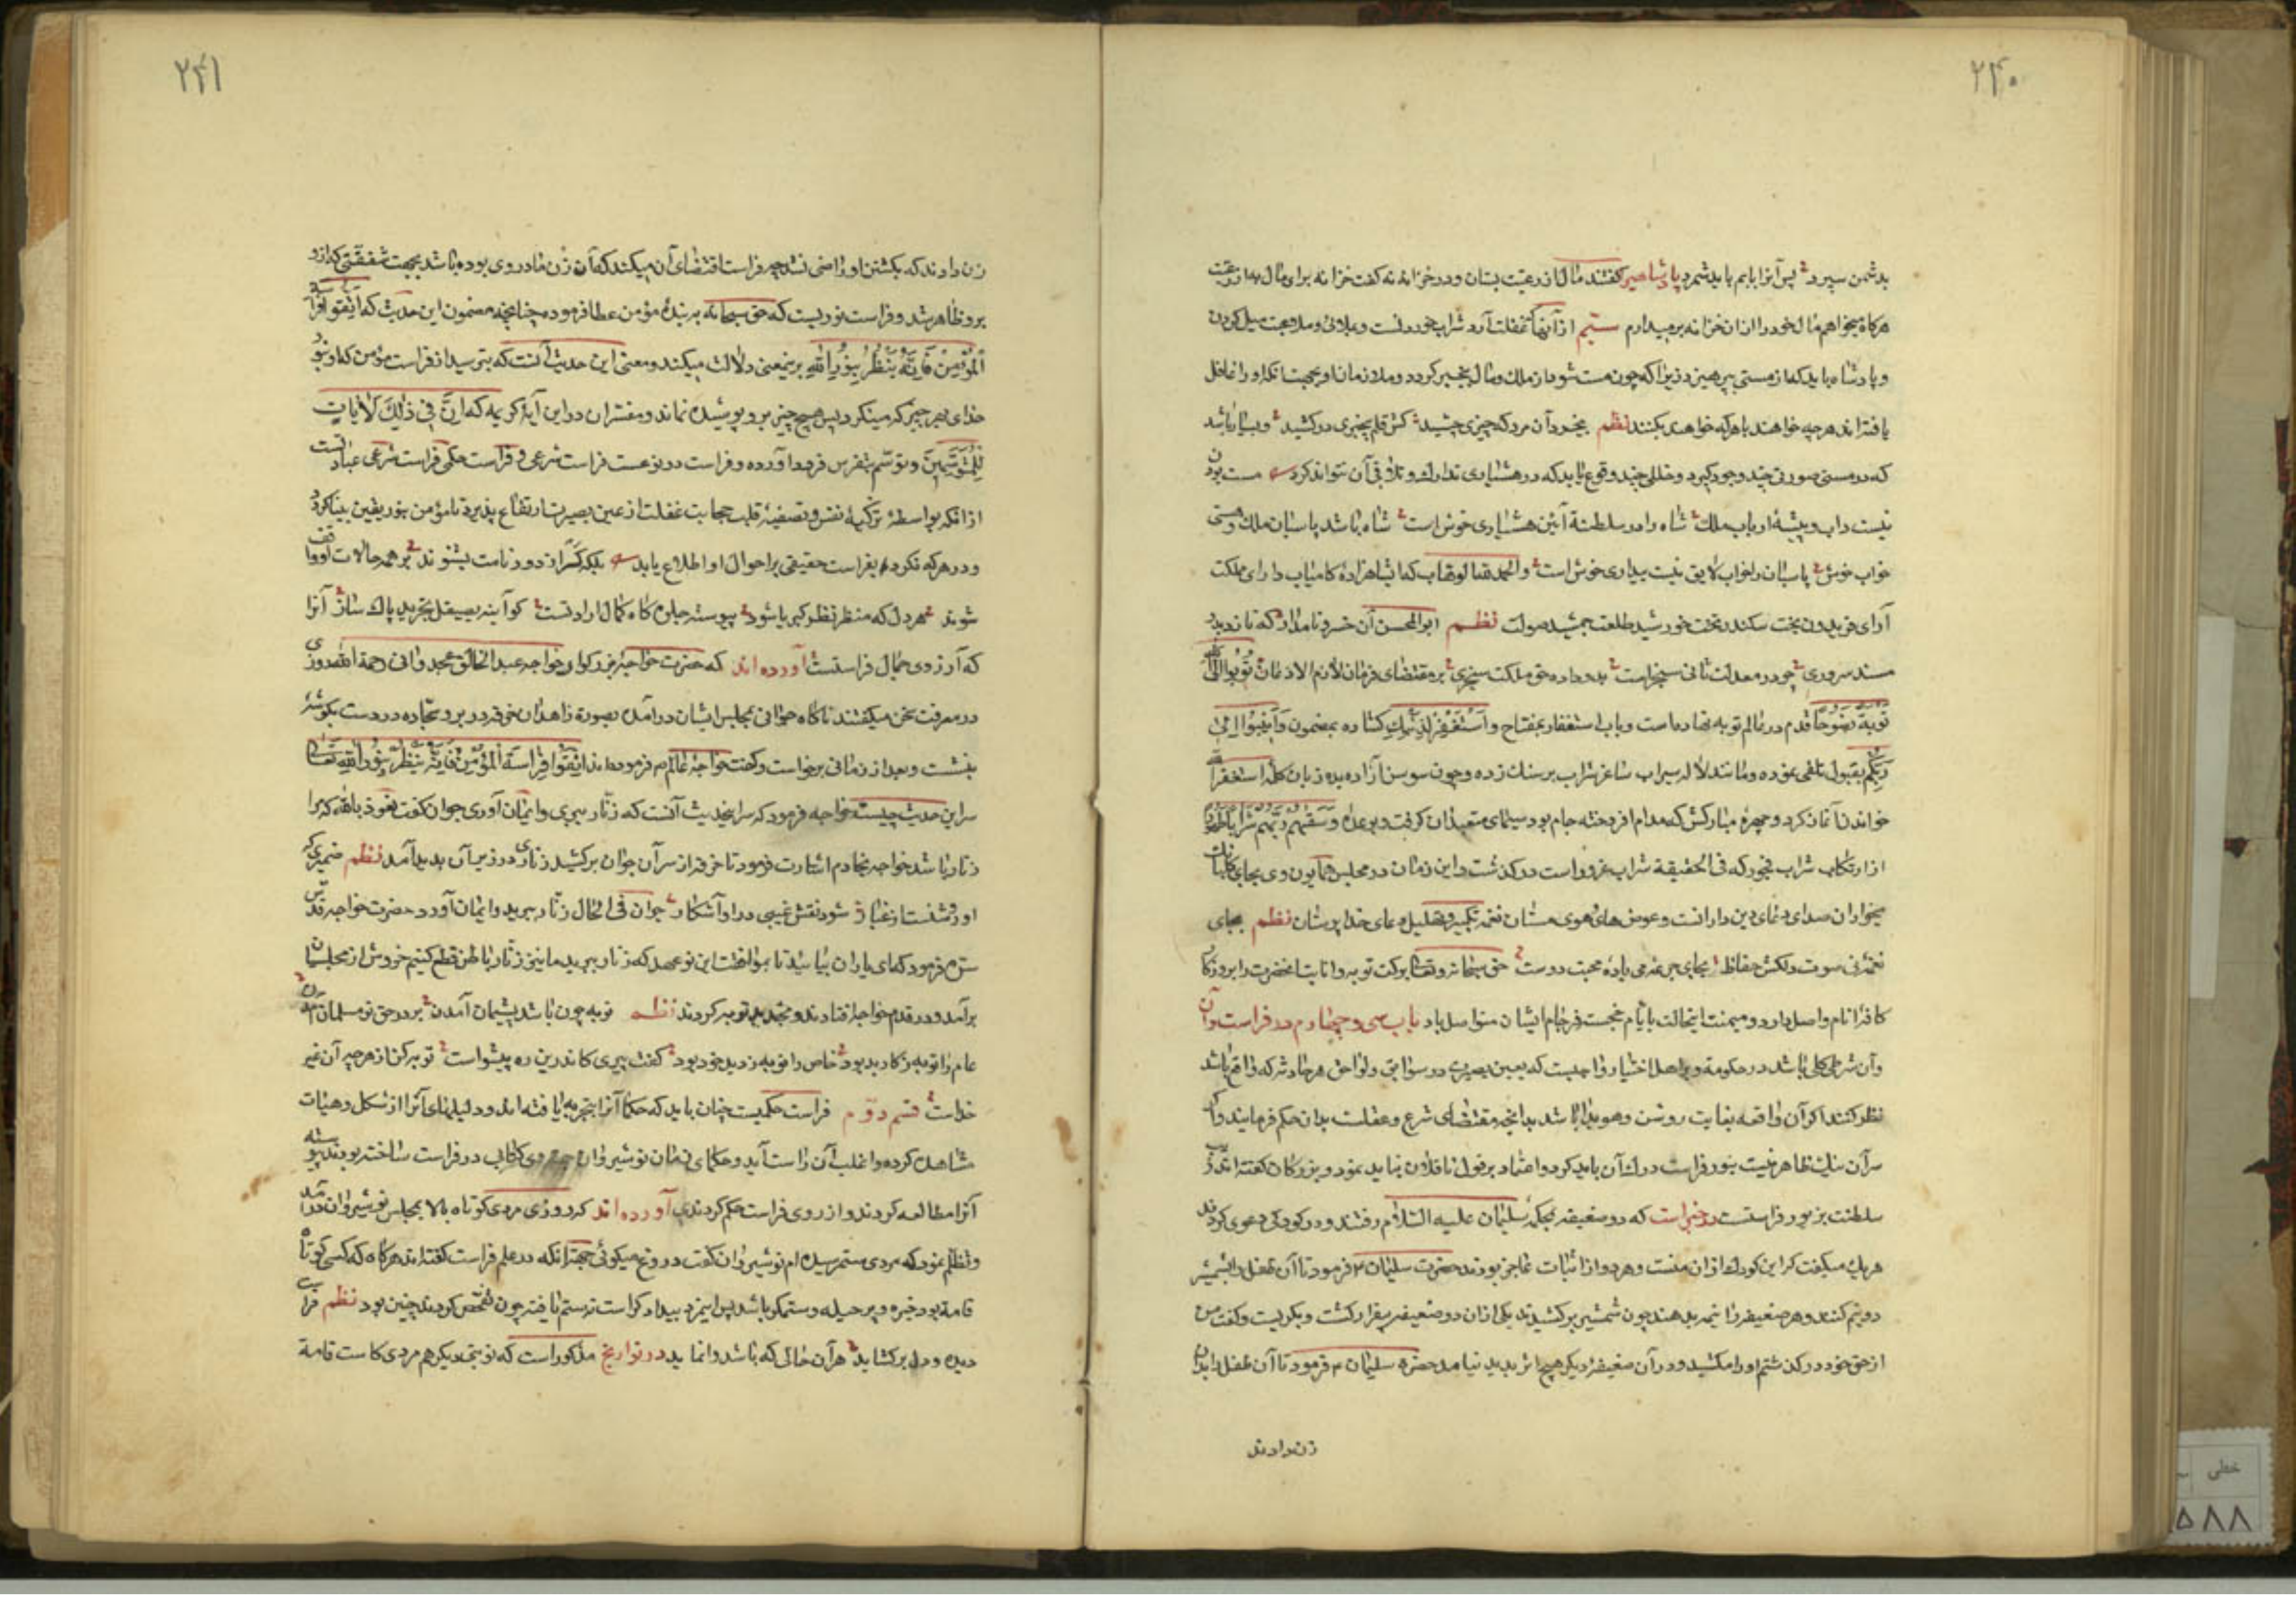 ۲۴۰
بدشمن سپرد پس آنرا بایم باید شمرد پادشاهیرا گفتند مال از رعیت بستان و در خزانه نه گفت خزانه برای مال به از رعیت
هرگاه میخواهم مال خود را از ان خزانه برمیدارم سیّم از آنها که غفلت آرد شراب خوردنست و بملاهی و ملاعبت میل کردن
و پادشاه باید که از مستی بپرهیزد زیرا که چون مست شود از ملک و مال بیخبر گردد و ملازمان او بجهت آنکه او را غافل
یافته‌اند هرچه خواهند با هرکه خواهند بکنند نظم بیخرد آن مرد که چیزی چشید کش قلم بیخبری در کشید و بسیار باشد
که در مستی صورتی چند وجود گیرد و خللی چند وقوع یابد که در هشیاری تدارک و تلافی آن نتواند کرد مست بودن
نیست داب و پیشهٔ ارباب ملک شاه را در سلطنة آئین هشیاری خوش است شاه باشد پاسبان ملک و مستی
خواب خوش پاسبان را خواب لایق نیست بیداری خوش است والحمدلله الوهاب که این شاهزادهٔ کامیاب دارای مملکت
آرای فریدون بخت سکندر تخت خورشید طلعت جمشید صولت نظم ابوالمحسن آن خسرو نامدار که نازد بدو
مسند سروری چو در معدلت ثانی سنجر است بدو داده حق ملکت سنجری بر مقتضای فرمان لازم الاذعان تُوبُوا اِلَی اللّه
تَوبَةً نَصُوحًا قدم در عالم توبه نهاده است و باب استغفار بمفتاح وَاسْتَغْفِرْ لِذَنْبِكَ گشاده بمضمون وَاَنِیبُوا اِلی
رَبِّكُم بقبول تلقی نموده و مانند لاله سیراب ساغر شراب بر سنک زده و چون سوسن آزاده بده زبان کلمهٔ استغفراللّه
خواندن آغاز کرد و چهرهٔ مبارکش که مدام افروخته جام بود سیمای متعبدان گرفت و بوعدهٔ وَسَقٰیهُم رَبُّهُم شَرَابًا طَهُورًا
از ارتکاب شراب فجور که فی الحقیقة شراب غرور است درگذشت و این زمان در مجلس همایون وی بجای گلبانک
میخواران صدای دعای دین دارانست و عوض های و هوی مستان نغمه تکبیر و تهلیل و عای خدا پرستان نظم بجای
نغمهٔ نی صوت دلکش حفاظ بجای جرعهٔ می بادهٔ محبت دوست حق سبحانه و تعالی برکت توبه و انابت انحضرت را بروزگار
کافهٔ انام واصل دارد و میمنت اینحالت بایام خجسته فرجام ایشان متواصل باد باب سی و چهارم در فراست و آن
و آن شرطی کلی باشد در حکومة و بر اهل اختیار واجبست که بعین بصیرت در سوابق و لواحق هر حادثه که واقع باشد
نظر کنند اگر آن واقعه بغایت روشن و هویدا باشد بدانچه مقتضای شرع و عقلست بدان حکم فرمایند و اگر
سر آن نیک ظاهر نیست بنور فراست درک آن باید کرد و اعتماد بر قول ناقلان نباید نمود و بزرگان گفته‌اند زیب
سلطنت بزیور فراستست در خبر است که دو ضعیفه بمحکمهٔ سلیمان علیه السّلام رفتند و در کودکی دعوی کردند
هر یک میگفت که این کودک از ان منست و هر دو از اثبات عاجز بودند حضرت سلیمان ع فرمود تا آن طفل را بشمشیر
دو نیم کنند و هر ضعیفه را نیمه بدهند چون شمشیر برکشیدند یکی از ان دو ضعیفه بیقرار گشت و بگریست و گفت من
از حق خود درگذشتم او را مکشید و در آن ضعیفه دیگر هیچ اثر پدید نیامد حضرة سلیمان ع فرمود تا آن طفل را بدان
زن دادند
۲۴۱
زن دادند که بکشتن او راضی نشد چه فراست اقتضای آن میکند که آن زن مادر وی بوده باشد بجهت شفقتی که از و
برو ظاهر شد و فراست نوریست که حق سبحانه به بندهٔ مؤمن عطا فرموده چنانچه مضمون این حدیث که اِتَّقُوا فِراسَةَ
اَلْمُؤْمِنْ فَاِنَّهُ یَنْظُرُ بِنُورِ اللّهِ برینمعنی دلالت میکند و معنی این حدیث آنست که بترسید از فراست مؤمن که او بنور
خدای بهر چیز که مینگرد پس هیچ چیز برو پوشیده نماند و مفسران در این آیهٔ کریمه که اِنَّ فی ذٰلِكَ لَاٰیٰاتٍ
لِلْمُتَوَسِّمینَ و توسّم تفرس فرود آورده و فراست دو نوعست فراست شرعی و فراست حکمی فراست شرعی عبارتست
از انکه بواسطهٔ تزکیهٔ نفس و تصفیهٔ قلب حجابت غفلت از عین بصیرت ارتفاع پذیرد تا مؤمن بنور یقین بینا گردد
و در هرکه نگرد بفراست حقیقی بر احوال او اطلاع یابد بلکه از دور نامت بشنوند بر همه حالات او واقف
شوند هر دل که منظر نظر کبریا شود پیوسته جلوه گاه کمال ارادتست کو آینه بصیقل تجرید پاک ساز آنرا
که آرزوی جمال فراستست آورده‌اند که حضرت خواجهٔ بزرگوار خواجه عبدالخالق غجدوانی رحمة الله روزی
در معرفت سخن میگفتند ناگاه جوانی بمجلس ایشان درآمد بصورة زاهدان خرقه در بر و سجّاده در دست بگوشهٔ
بنشست و بعد از زمانی برخاست و گفت خواجهٔ عالم ص فرموده‌اند اِتَّقُوا فِراسَةَ اَلْمُؤْمِنْ فَاِنَّهُ یَنْظُرُ بِنُورِ اللّهِ تَعالٰی
سر این حدیث چیست خواجه فرمود که سر اینحدیث آنست که زنّار ببری و ایمان آوری جوان گفت نعوذ بالله که مرا
زنار باشد خواجه بخادم اشارت فرمود تا خرقه از سر آن جوان برکشید زناری در زیر آن پدید آمد نظم ضمیری که
او روشنست از غبار شود نقش غیبی درو آشکار جوان فی الحال زنّار ببرید و ایمان آورد حضرت خواجه قدس
سرّه فرمود که ای یاران بیائید تا بموافقت این نوعهد که زنار ببرید ما نیز زنّار باطن قطع کنیم خروش از مجلسیان
برآمد و در قدم خواجه افتادند و بتجدید توبه کردند نظم توبه چون باشد پشیمان آمدن بر در حق نو مسلمان آمدن
عام را توبه ز کار بد بود خاص را توبه ز دید خود بود گفت پیری کاندرین ره پیشواست توبه کن از هرچه آن غیر
خداست قسم دوّم فراست حکمیست چنان باید که حکما آنرا بتجربه یافته‌اند و دلیلهای آنرا از شکل و هیأت
مشاهده کرده و اغلب آن راست آید و حکمای زمان نوشیروان کتابی در فراست ساخته بودند پیوسته
آنرا مطالعه کردند و از روی فراست حکم کردندی آورده‌اند که روزی مردی کوتاه بالا بمجلس نوشیروان درآمد
و تظلم نمود که مردی ستمرسیده ام نوشیروان گفت دروغ میگوئی جهة آنکه در علم فراست گفته‌اند هرگاه که کسی کوتاه
قامة بود خیره و پر حیله و ستمکار باشد پس اینمرد بیدادگر است نه ستم یافته چون تفحص کردند چنین بود نظم فراست
دیده و دل برکشاید هر آن حالی که باشد وانماید در تواریخ مذکور است که نوبتی دیگر هم مردی کاست قامة
خطی
۵۸۸